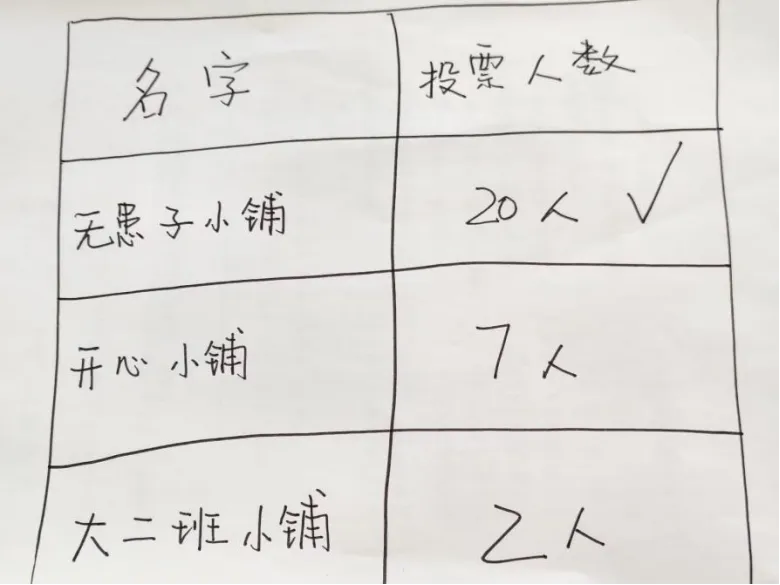 名字 投票人数
无患子小铺 20人 ✓
开心小铺 7人
大二班小铺 2人